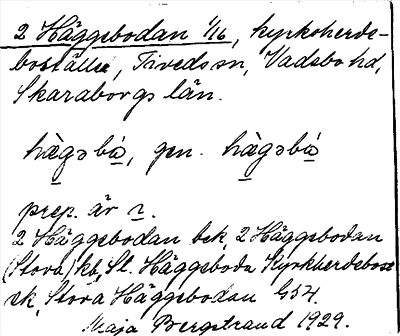 2 Häggebodan 1/16, kyrkoherde-
boställe, Tiveds sn, Vadsbo hd,
Skaraborgs län.
hàgəbá, gen. hàgəbá
prep. är ɩ.
2 Häggebodan bek, 2 Häggebodan
(Stora) kb, St. Häggeboda Kyrkherdebost
ek, Stora Häggebodan G54.
Maja Bergstrand 1929.